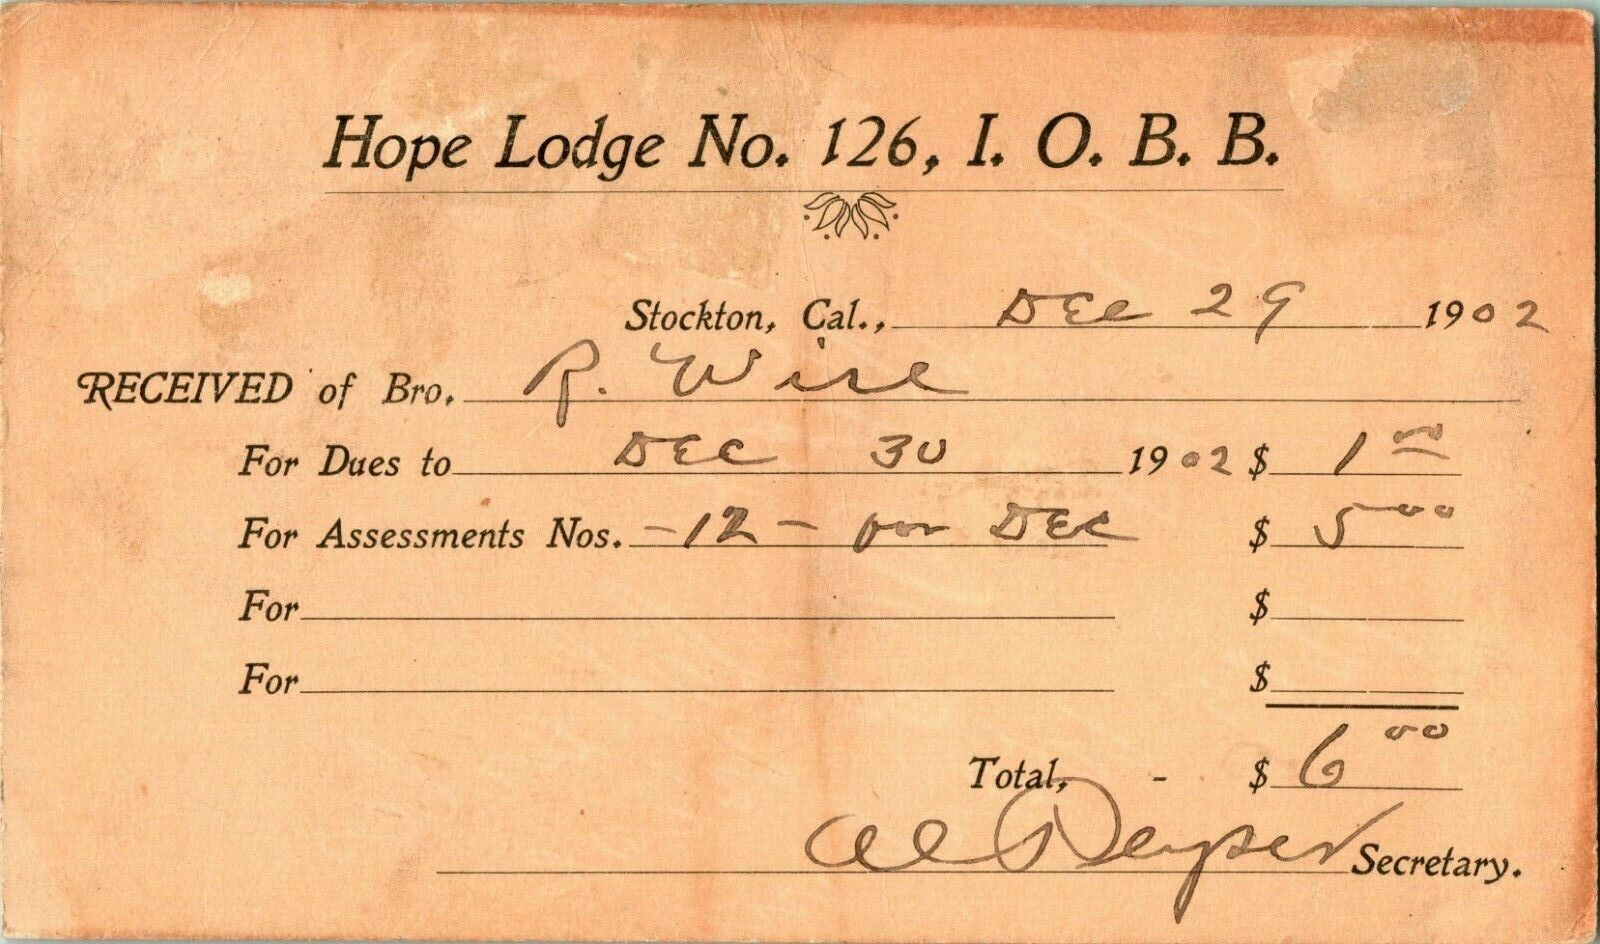 Hope Lodge No. 126, I. O. B. B.
Stockton, Cal., Dec 29 1902
RECEIVED of Bro. R. Wise
For Dues to Dec 30 1902 $ 1 00
For Assessments Nos. -12- for Dec $ 5 00
For $
For $
Total, - $ 6 00
Secretary.